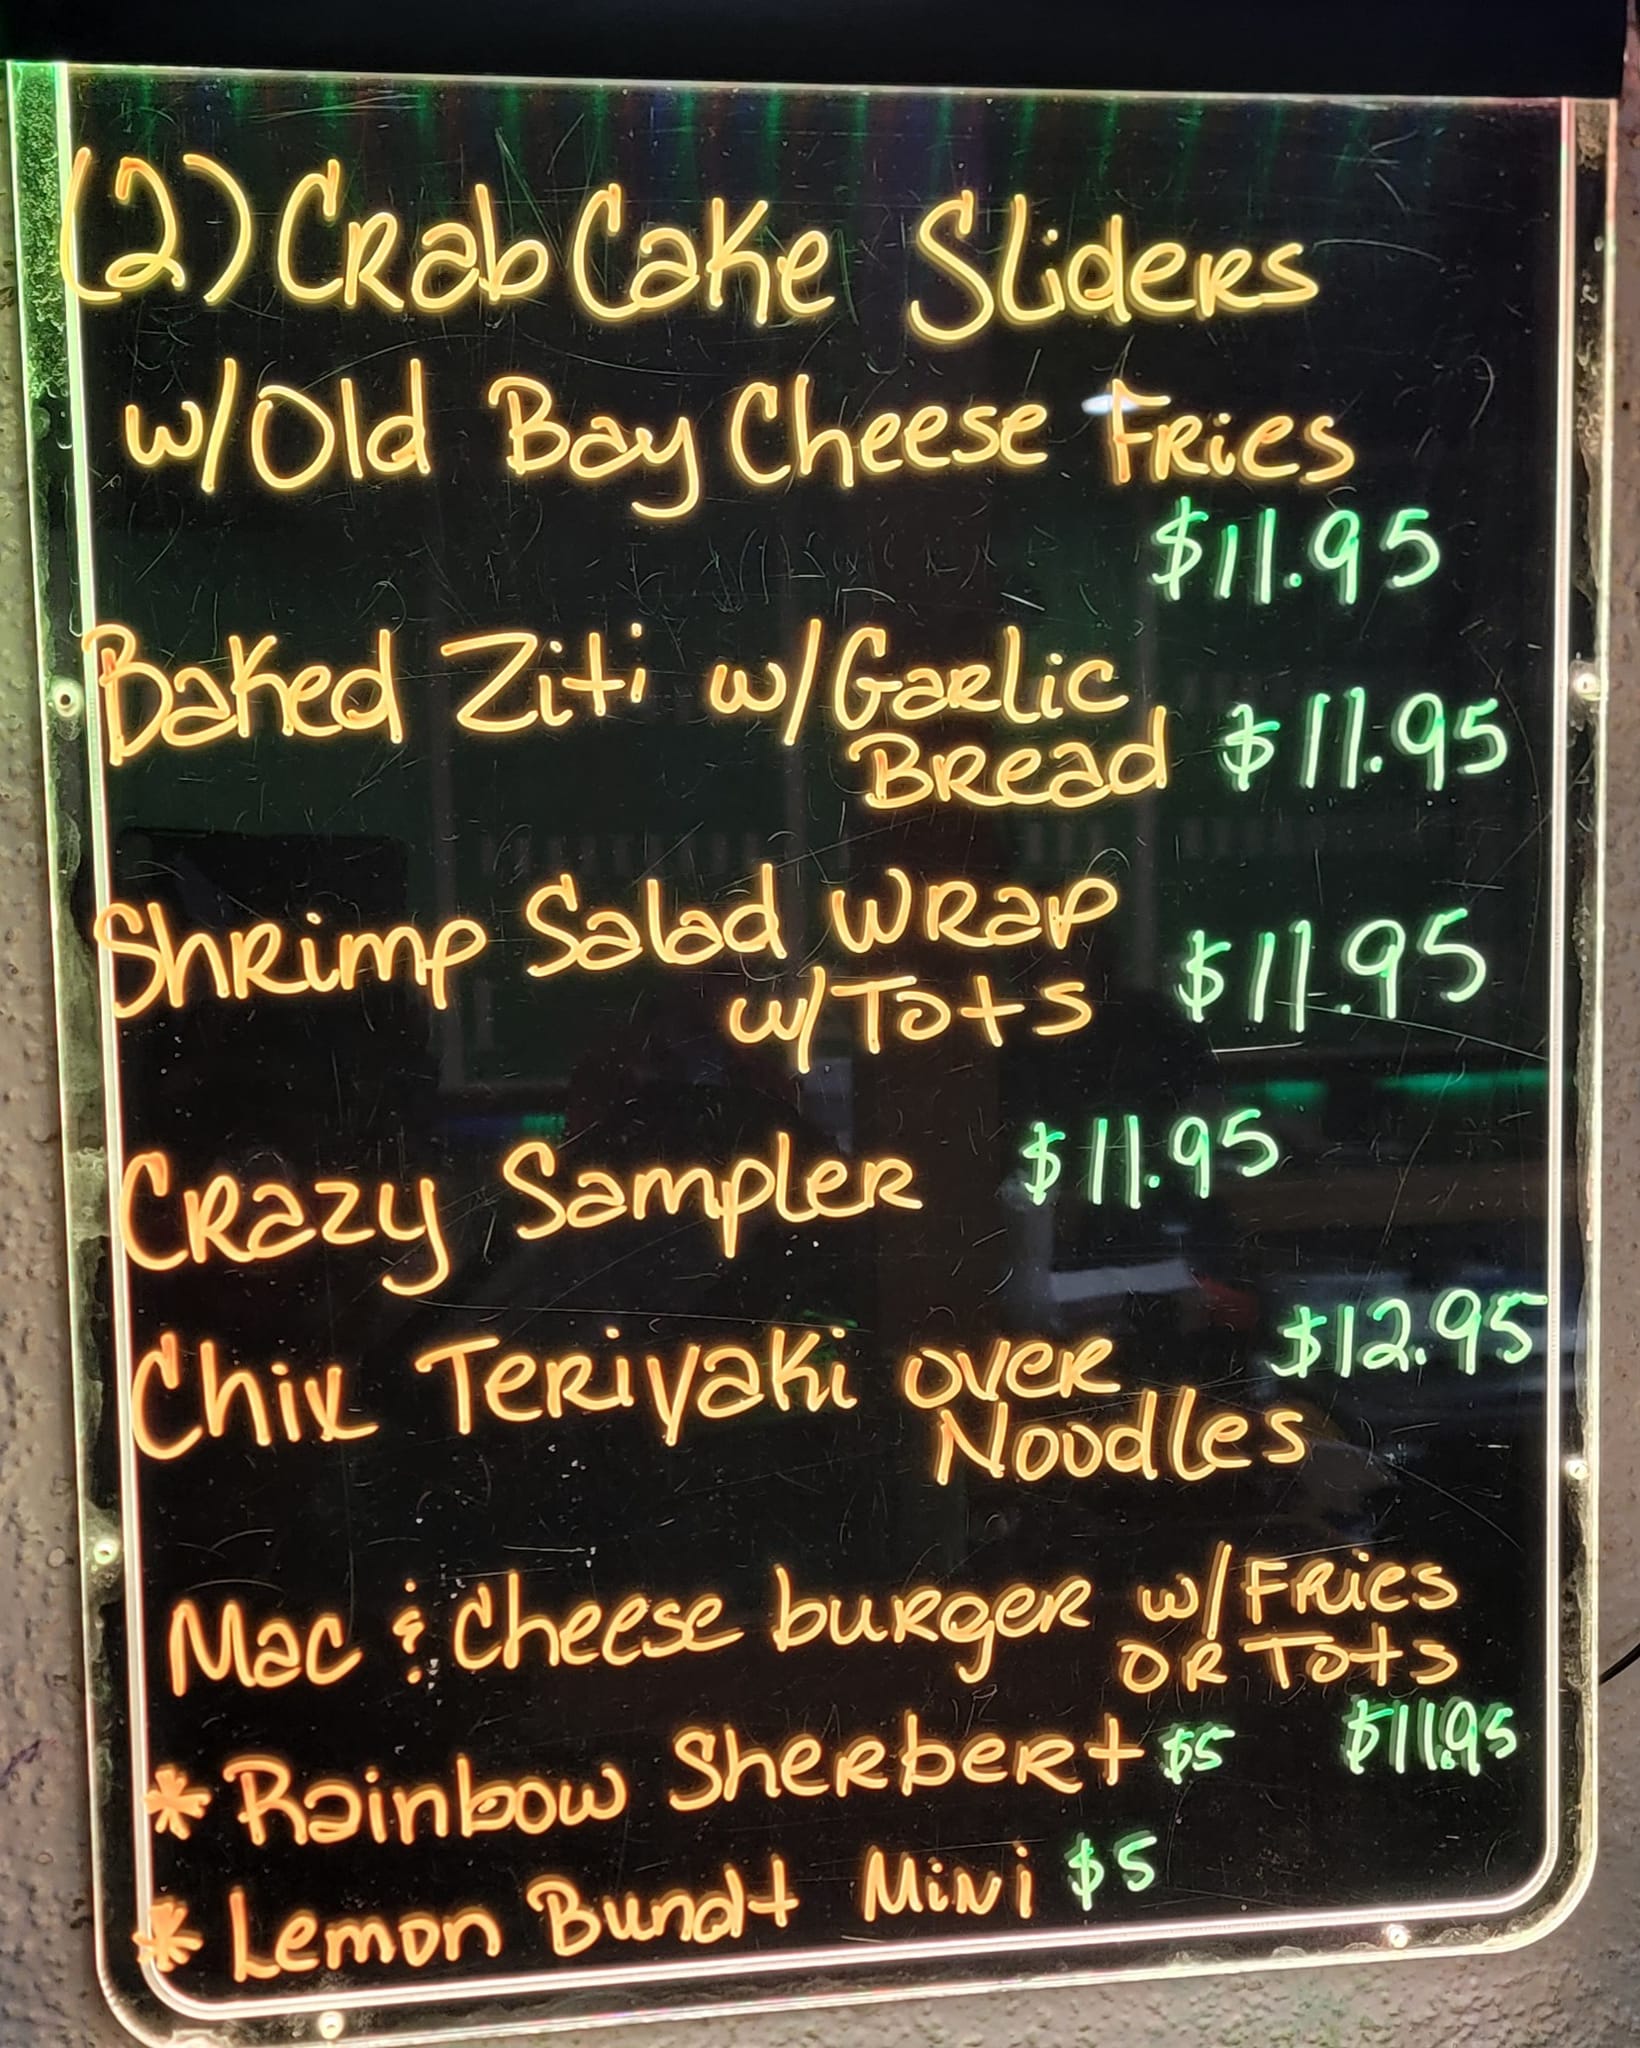 (2) Crab Cake Sliders
w/Old Bay Cheese Fries
$11.95
Baked Ziti w/Garlic
Bread $11.95
Shrimp Salad Wrap
w/Tots $11.95
Crazy Sampler $11.95
Chix Teriyaki over $12.95
Noodles
Mac & Cheese burger w/Fries
or Tots
$11.95
* Rainbow Sherbert $5
* Lemon Bundt Mini $5